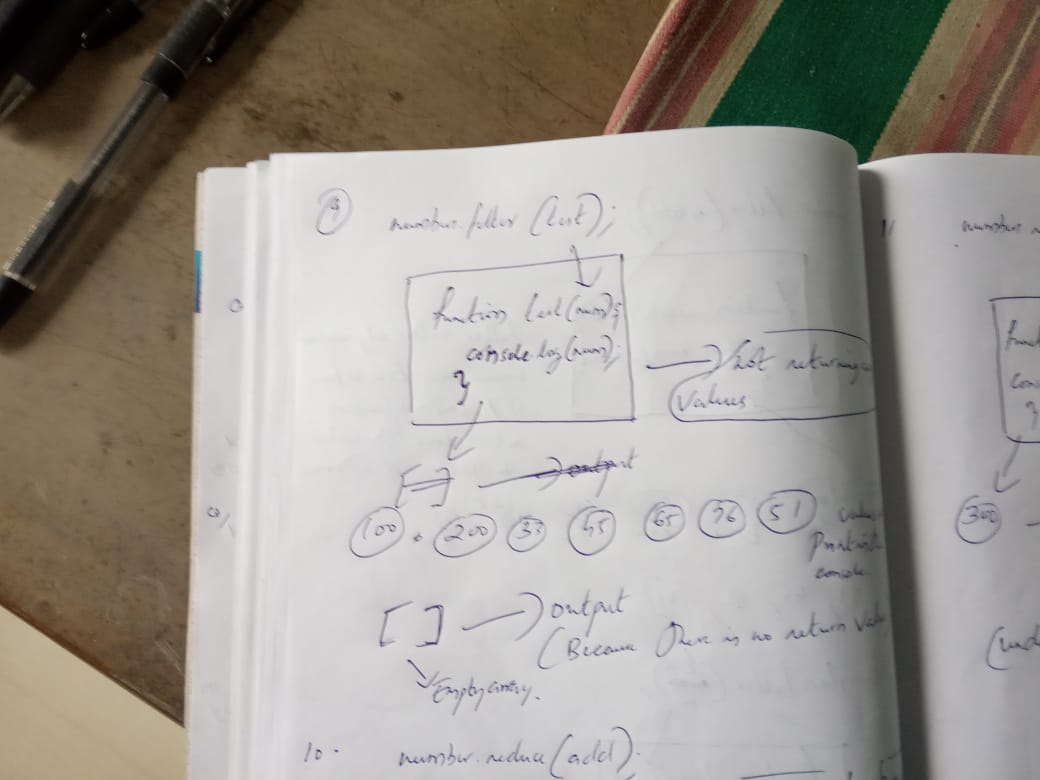 9
number.filter (test);
function test (num) {
console.log (num);
}
Not returning
values
[ ] output
100 200 33 45 65 76 51
values
console
[ ] output
(Because there is no return value
Empty array.
10. number.reduce (add)
11
number
300